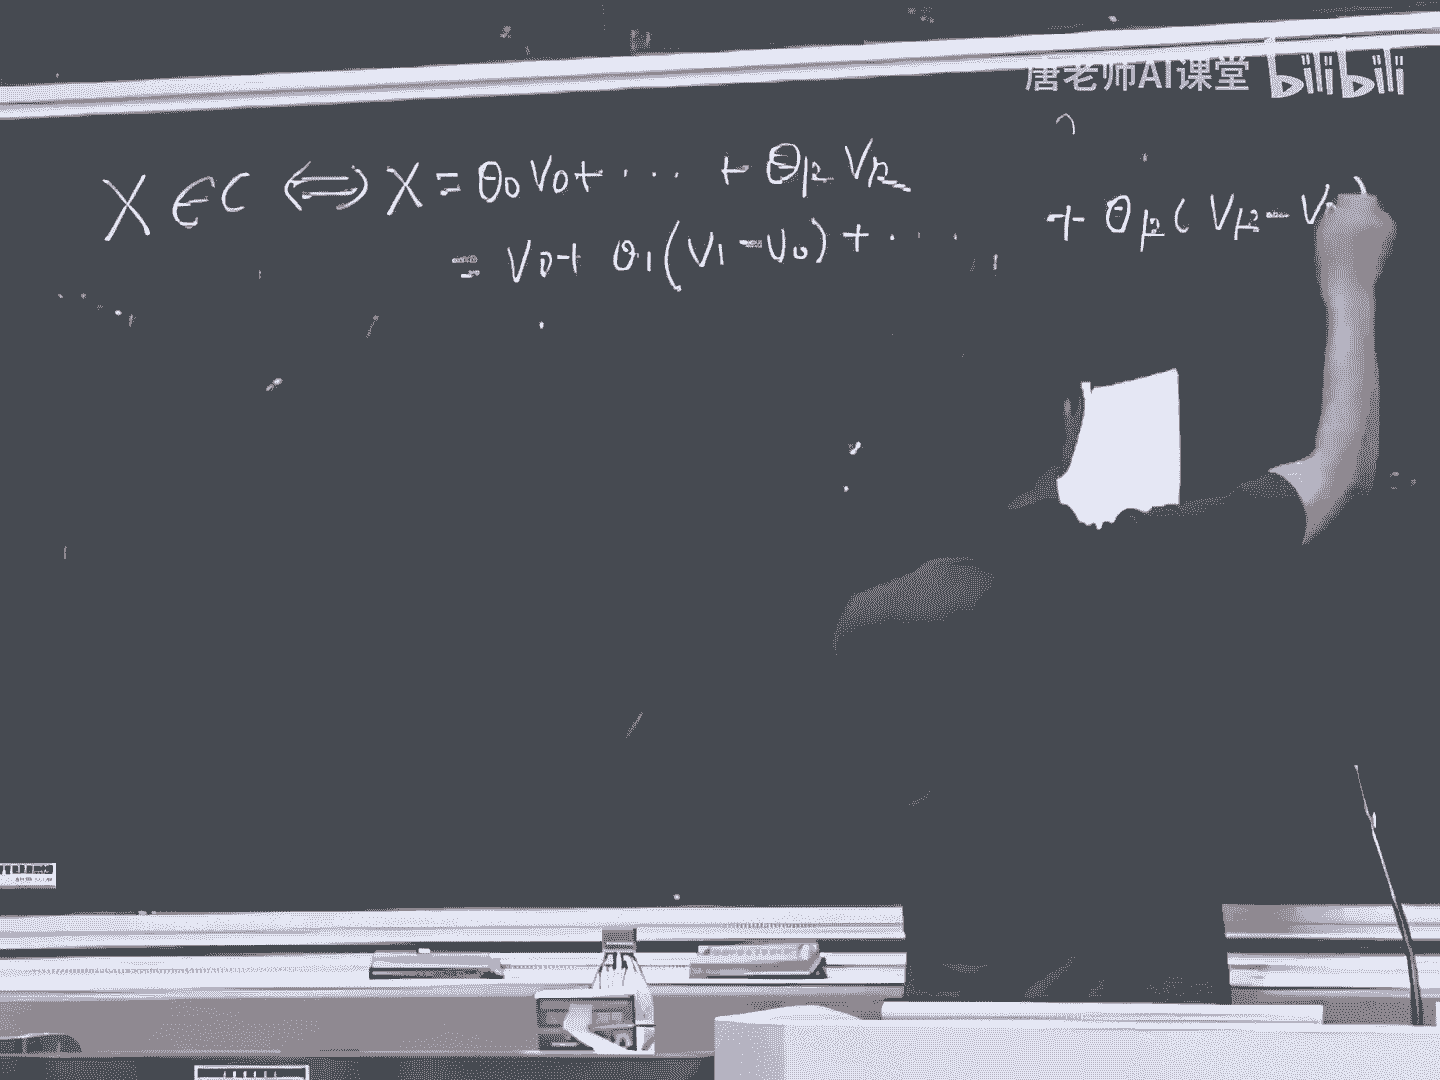 唐老师AI课堂 bilibili
X ∈ C ⟺ X = θ0 V0 + ··· + θk Vk
= V0 + θ1 (V1 - V0) + ··· + θk ( Vk - V0 )